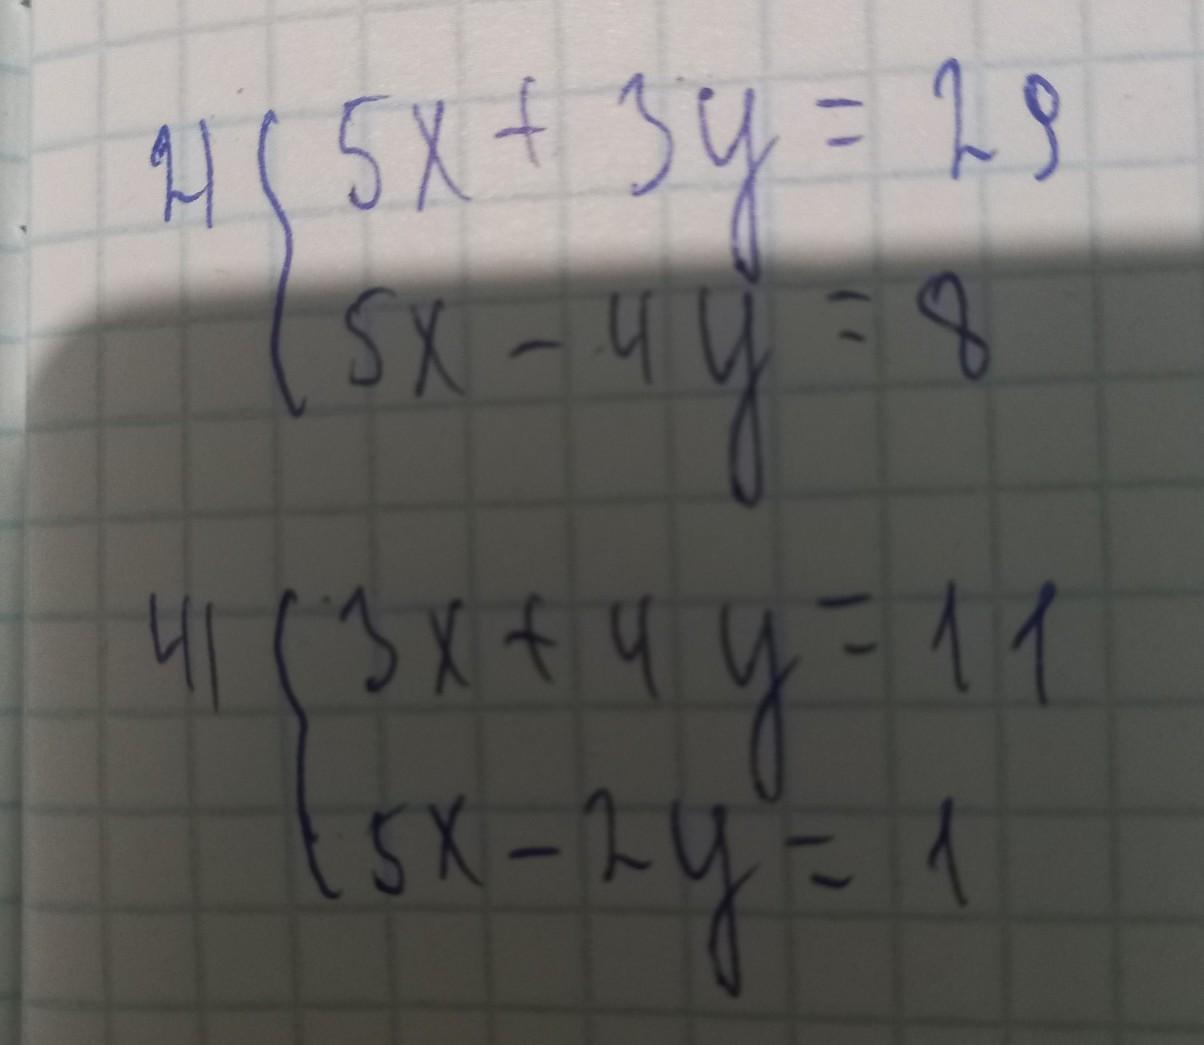 2) { 5x + 3y = 29
5x - 4y = 8
4) { 3x + 4y = 11
5x - 2y = 1